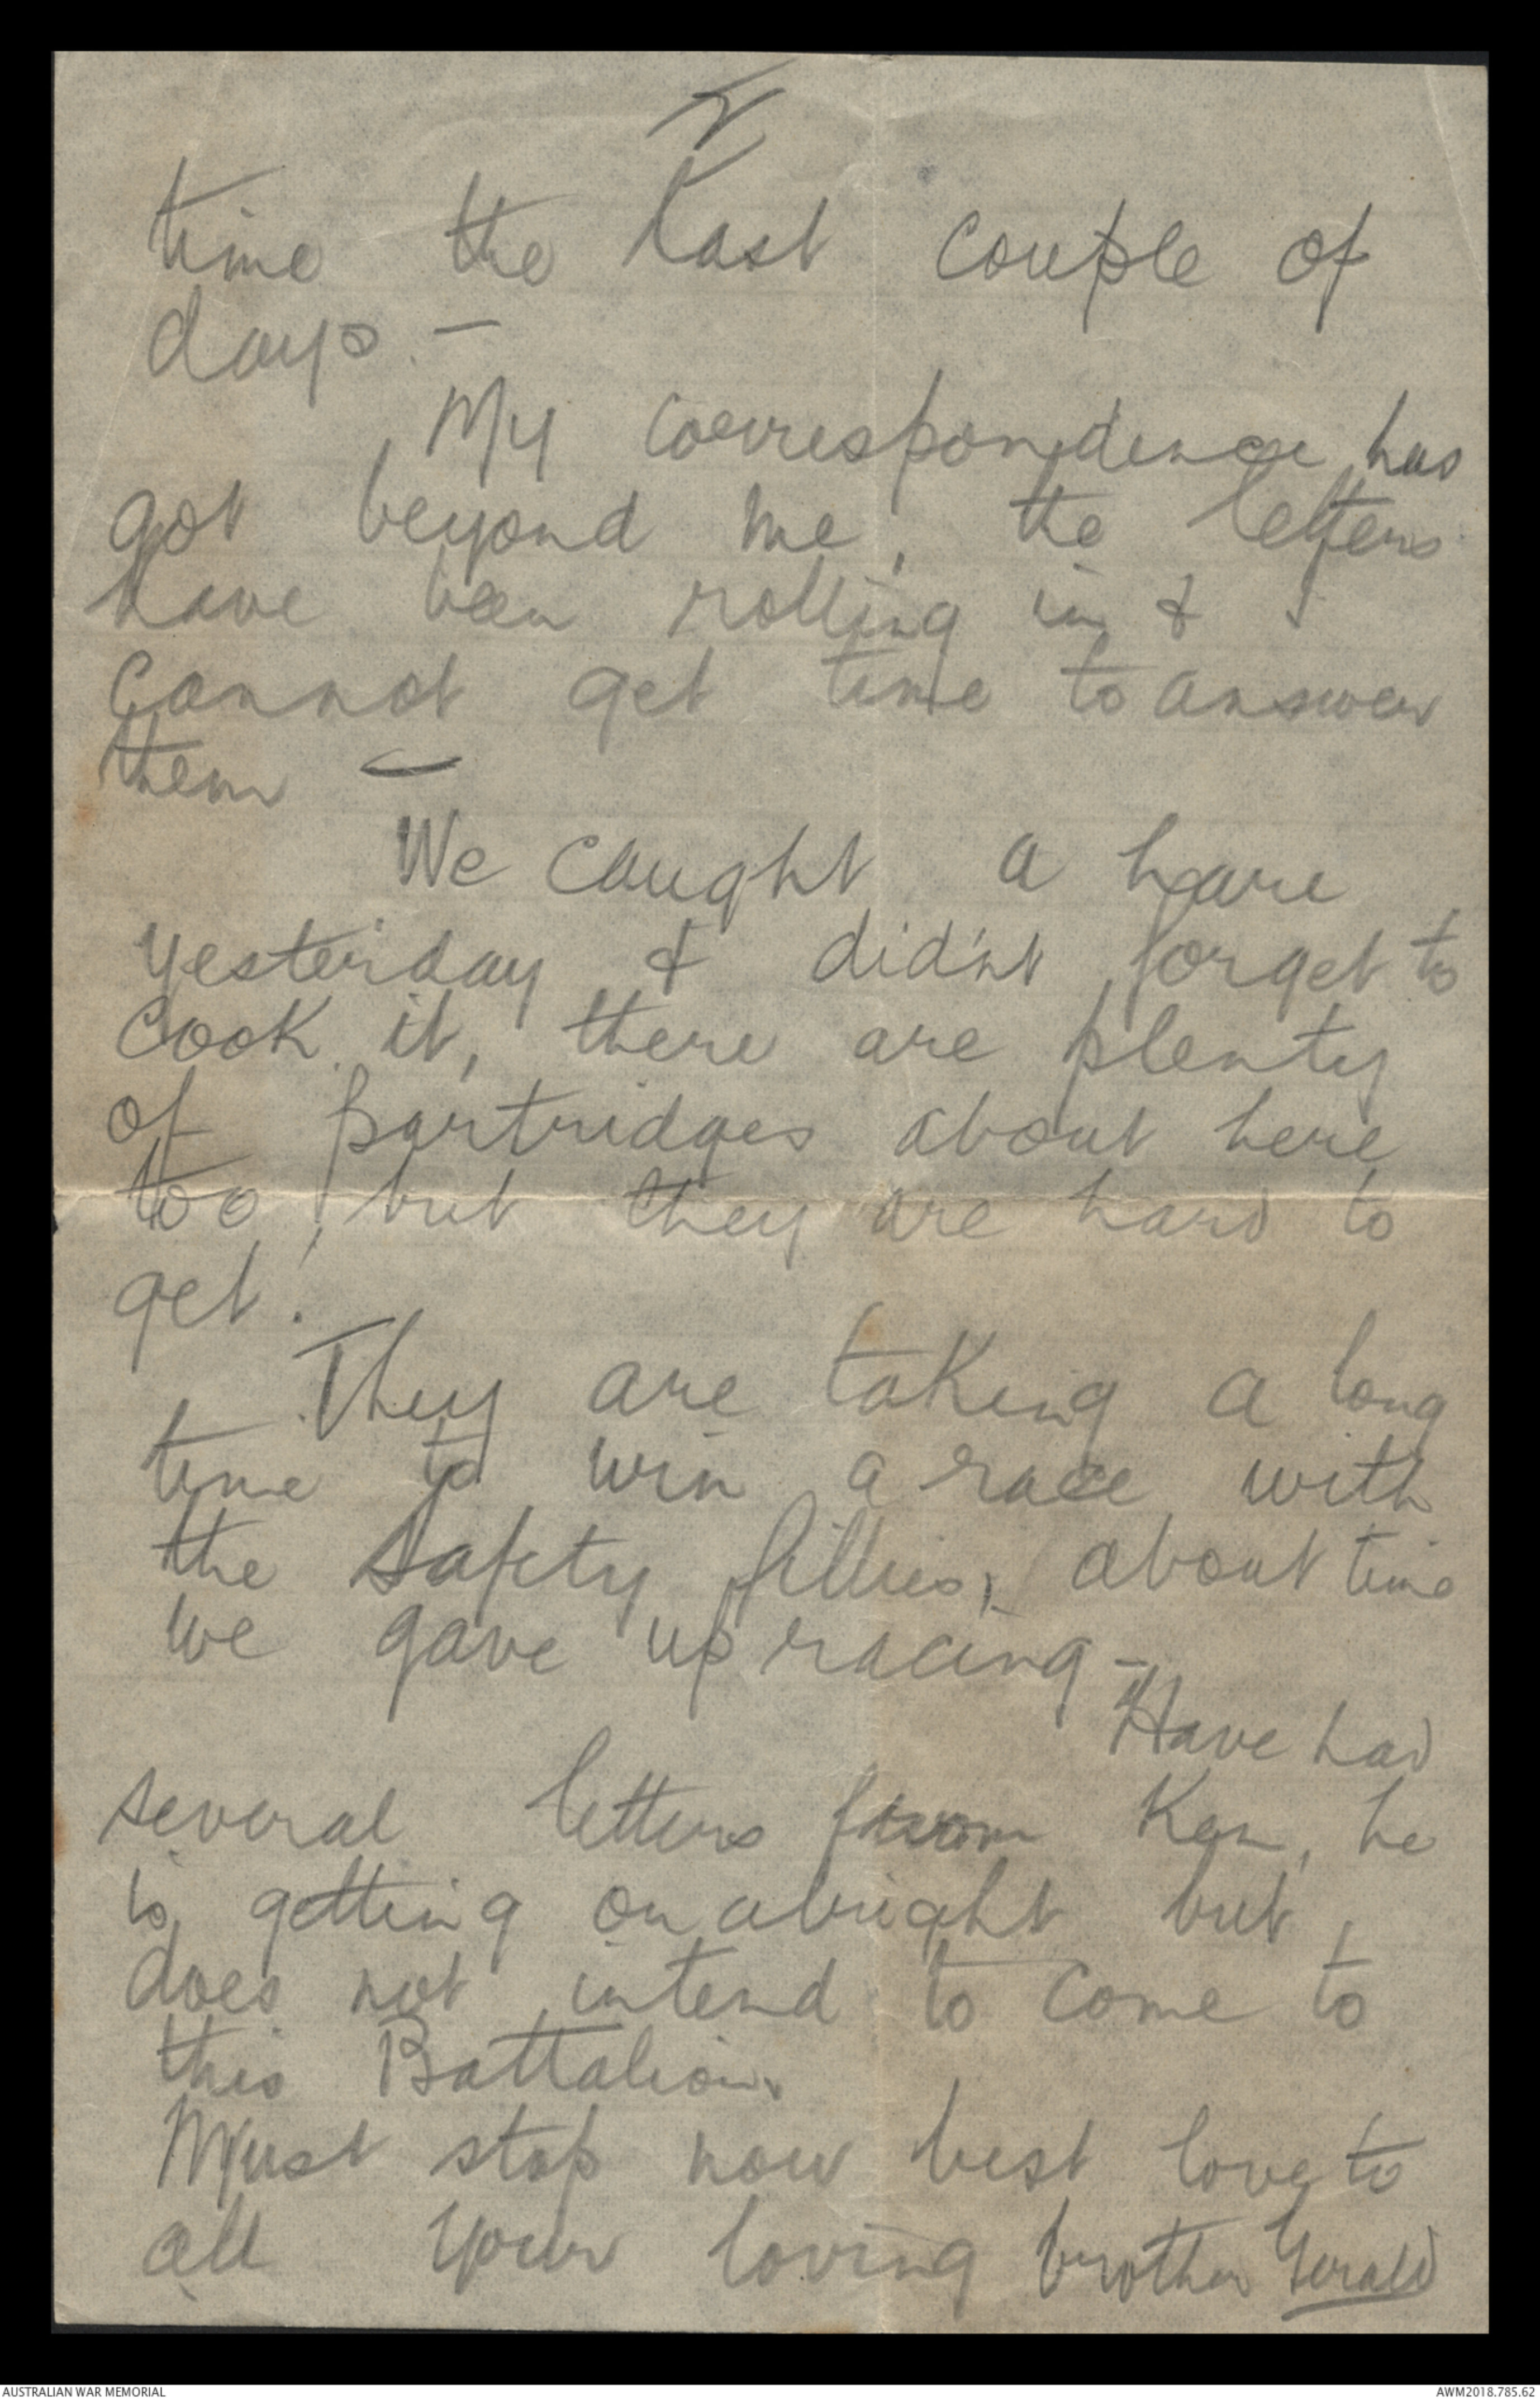 V
time the last couple of
days. —
My correspondence has
got beyond me, the letters
have been rolling in & I
cannot get time to answer
them —
We caught a hare
yesterday & did'nt forget to
cook it, there are plenty
of partridges about here
too, but they are hard to
get!
They are taking a long
time to win a race with
the Safety fillies, about time
we gave up racing —
Have had
several letters from Ken, he
is getting on alright but
does not intend to come to
this Battalion.
Must stop now best love to
all your loving brother Gerald
AUSTRALIAN WAR MEMORIAL
AWM2018.785.62